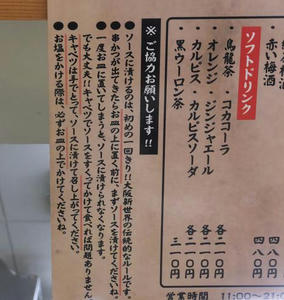 赤い梅酒 四八〇円
梅酒 四八〇円
ソフトドリンク
烏龍茶・コカコーラ 各二一〇円
オレンジ・ジンジャエール 各二一〇円
カルピス・カルピスソーダ 各二一〇円
黒ウーロン茶 三一〇円
営業時間 11:00~21:0
※ご協力お願いします!!
●ソースに漬けるのは、初めの一回きり!!大阪新世界の伝統的なルールです。
●串かつが出てきたらお皿の上に置く前に、まずソースを漬けてくださいね。
●一度お皿に置いてしまうと、ソースに漬けられなくなります。
でも大丈夫!!キャベツでソースをすくってかけて食べれば問題ありません
●キャベツは手でとって、ソースに漬けて召し上がってください。
●お塩をかける際は、必ずお皿の上でかけてくださいね。